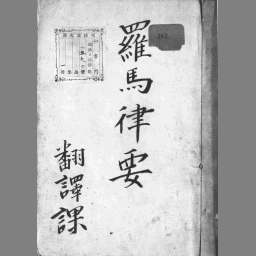 羅馬律要
翻譯課